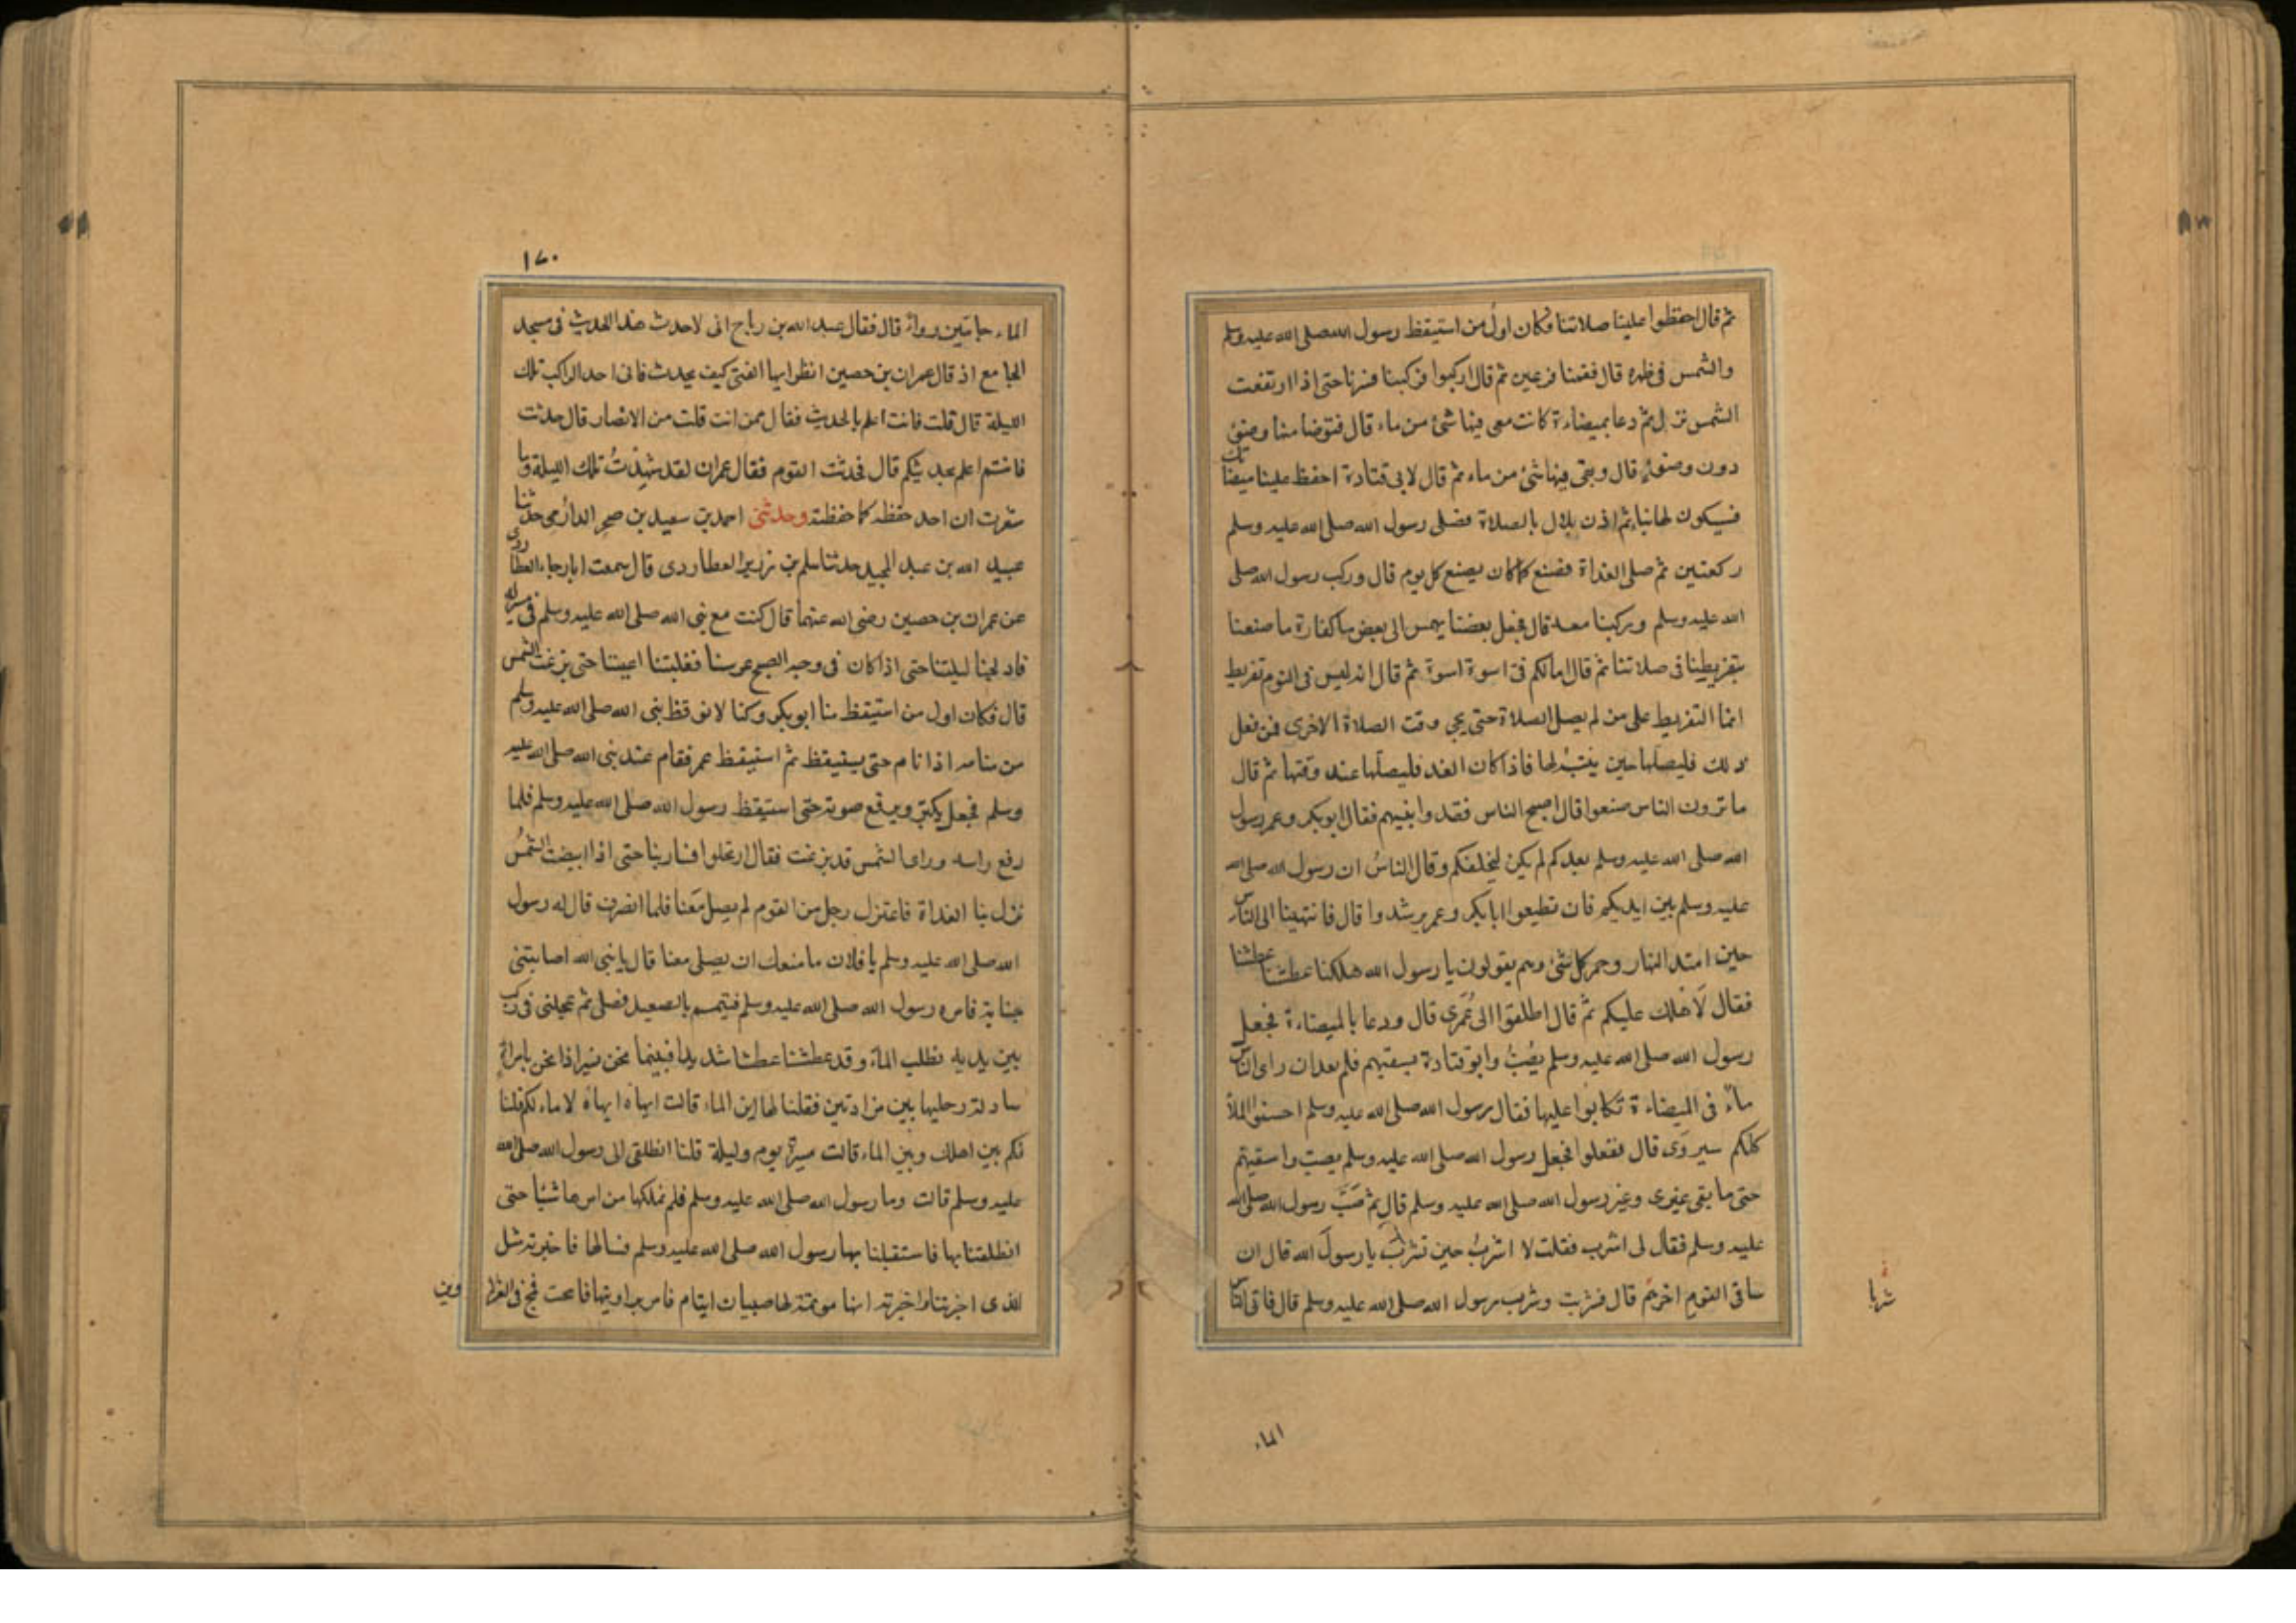 ثم قال احفظوا علينا صلاتنا فكان اول من استيقظ رسول الله صلى الله عليه وسلم
والشمس في ظهره قال فقمنا فزعين ثم قال اركبوا فركبنا فسرنا حتى اذا ارتفعت
الشمس نزل ثم دعا بميضاءة كانت معي فيها شئ من ماء قال فتوضا منها وضوء
دون وضوء قال وبقي فيها شئ من ماء ثم قال لابي قتادة احفظ علينا ميضاتك
فسيكون لها نباء ثم اذن بلال بالصلاة فصلى رسول الله صلى الله عليه وسلم
ركعتين ثم صلى الغداة فصنع كما كان يصنع كل يوم قال وركب رسول الله صلى
الله عليه وسلم وركبنا معه قال فجعل بعضنا يهمس الى بعض ما كفارة ما صنعنا
بتفريطنا في صلاتنا ثم قال اما لكم فيّ اسوة اسوة ثم قال انه ليس في النوم تفريط
انما التفريط على من لم يصل الصلاة حتى يجي وقت الصلاة الاخرى فمن فعل
ذلك فليصلها حين ينتبه لها فاذا كان الغد فليصلها عند وقتها ثم قال
ما ترون الناس صنعوا قال اصبح الناس فقدوا نبيهم فقال ابوبكر وعمر رسول
الله صلى الله عليه وسلم بعدكم لم يكن ليخلفكم وقال الناس ان رسول الله صلى الله
عليه وسلم بين ايديكم فان تطيعوا ابابكر وعمر يرشدوا قال فانتهينا الى الناس
حين امتد النهار وحمر كل شئ وهم يقولون يا رسول الله هلكنا عطشنا عطشنا
فقال لا هلك عليكم ثم قال اطلقوا الى غمرى قال ودعا بالميضاءة فجعل
رسول الله صلى الله عليه وسلم يصب وابو قتادة يسقيهم فلم يعد ان راى الناس
ماء في الميضاءة تكابوا عليها فقال رسول الله صلى الله عليه وسلم احسنوا الملأ
كلكم سيروى قال ففعلوا فجعل رسول الله صلى الله عليه وسلم يصب واسقيهم
حتى ما بقي غيرى وغير رسول الله صلى الله عليه وسلم قال ثم صب رسول الله صلى الله
عليه وسلم فقال لي اشرب فقلت لا اشرب حين تشرب يا رسول الله قال ان
ساقي القوم اخرهم قال فشربت وشرب رسول الله صلى الله عليه وسلم قال فاتى الناس
شربا
الماء
١٧٠
الماء جامين رواء قال فقال عبد الله بن رباح انى لاحدث هذا الحديث في مسجد
الجامع اذ قال عمران بن حصين انظر ايها الفتى كيف يحدث فانى احد الركب تلك
الليلة قال قلت فانت اعلم بالحديث فقال ممن انت قلت من الانصار قال حدث
فانتم اعلم بحديثكم قال فحدثت القوم فقال عمران لقد شهدت تلك الليلة وما
شعرت ان احد حفظه كما حفظته وحدثنى احمد بن سعيد بن صخر الدارمي حدثنا
عبيد الله بن عبد المجيد حدثنا سلم بن زرير العطاردى قال سمعت ابا رجاء العطاردى
عن عمران بن حصين رضى الله عنهما قال كنت مع نبي الله صلى الله عليه وسلم في مسير له
فادلجنا ليلتنا حتى اذا كان في وجه الصبح عرسنا فغلبتنا اعيننا حتى بزغت الشمس
قال فكان اول من استيقظ منا ابوبكر وكنا لا نوقظ نبي الله صلى الله عليه وسلم
من منامه اذا نام حتى يستيقظ ثم استيقظ عمر فقام عند نبي الله صلى الله عليه
وسلم فجعل يكبر ويرفع صوته حتى استيقظ رسول الله صلى الله عليه وسلم فلما
رفع راسه وراى الشمس قد بزغت فقال ارتحلوا فسار بنا حتى اذا ابيضت الشمس
نزل بنا الغداة فاعتزل رجل من القوم لم يصل معنا فلما انصرف قال له رسول
الله صلى الله عليه وسلم يا فلان ما منعك ان يصلى معنا قال يا نبي الله اصابتنى
جنابة فامره رسول الله صلى الله عليه وسلم فتيمم بالصعيد فصلى ثم عجلنى في ركب
بين يديه نطلب الماء وقد عطشنا عطشا شديدا فبينما نحن نسير اذا نحن بامراة
سادلة رجليها بين مزادتين فقلنا لها اين الماء قالت ايهاه ايهاه لا ماء لكم قلنا
فكم بين اهلك وبين الماء قالت مسيرة يوم وليلة قلنا انطلقى الى رسول الله صلى الله
عليه وسلم قالت وما رسول الله صلى الله عليه وسلم فلم نملكها من امرها شيئا حتى
انطلقنا بها فاستقبلنا بها رسول الله صلى الله عليه وسلم فسالها فاخبرته مثل
الذى اخبرتنا واخبرته انها موتمة لها صبيان ايتام فامر براويتها فانيخت فمج في العزلا
وين